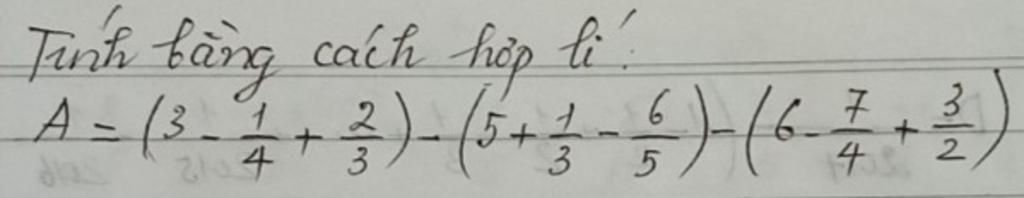 Tính bằng cách hợp lí:
A = (3 - 1/4 + 2/3) - (5 + 1/3 - 6/5) - (6 - 7/4 + 3/2)